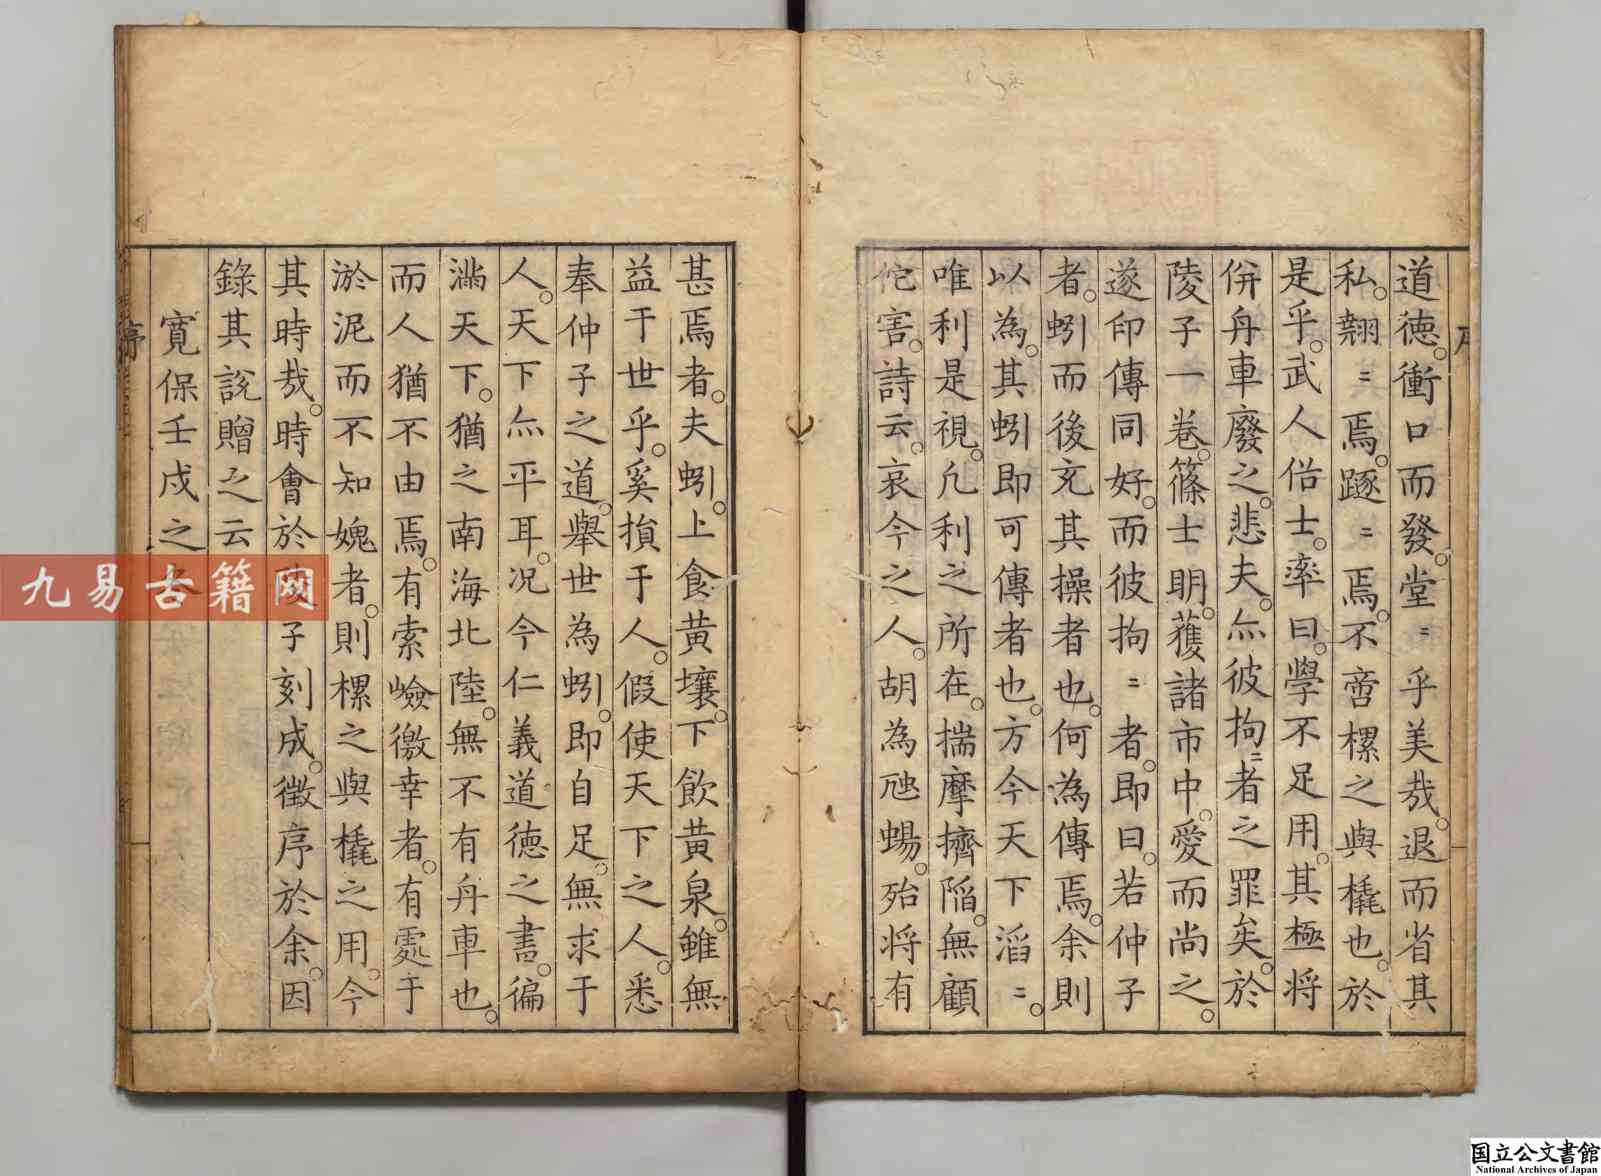 道德。衝口而發。堂〻乎美哉。退而省其
私。翱〻焉。蹊〻焉。不啻樏之與橇也。於
是乎。武人俗士。率曰。學不足用。其極將
併舟車廢之。悲夫。亦彼拘〻者之罪矣。於
陵子一卷。篠士明。獲諸市中。愛而尚之。
遂印傳同好。而彼拘〻者。即曰。若仲子
者。蚓而後充其操者也。何為傳焉。余則
以為。其蚓即可傳者也。方今天下滔〻。
唯利是視。凡利之所在。揣摩擠陷。無顧
佗害。詩云。哀今之人。胡為虺蜴。殆将有
甚焉者。夫蚓。上食黄壤。下飲黄泉。雖無
益于世乎。奚損于人。假使天下之人。悉
奉仲子之道。舉世為蚓。即自足。無求于
人。天下亦平耳。况今仁義道德之書。徧
滿天下。猶之南海北陸。無不有舟車也。
而人猶不由焉。有索嶮徼幸者。有處于
淤泥而不知媿者。則樏之與橇之用。今
其時哉。時會於陵子刻成。徵序於余。因
錄其説贈之云
寛保壬戌之冬
序
九易古籍网
国立公文書館
National Archives of Japan